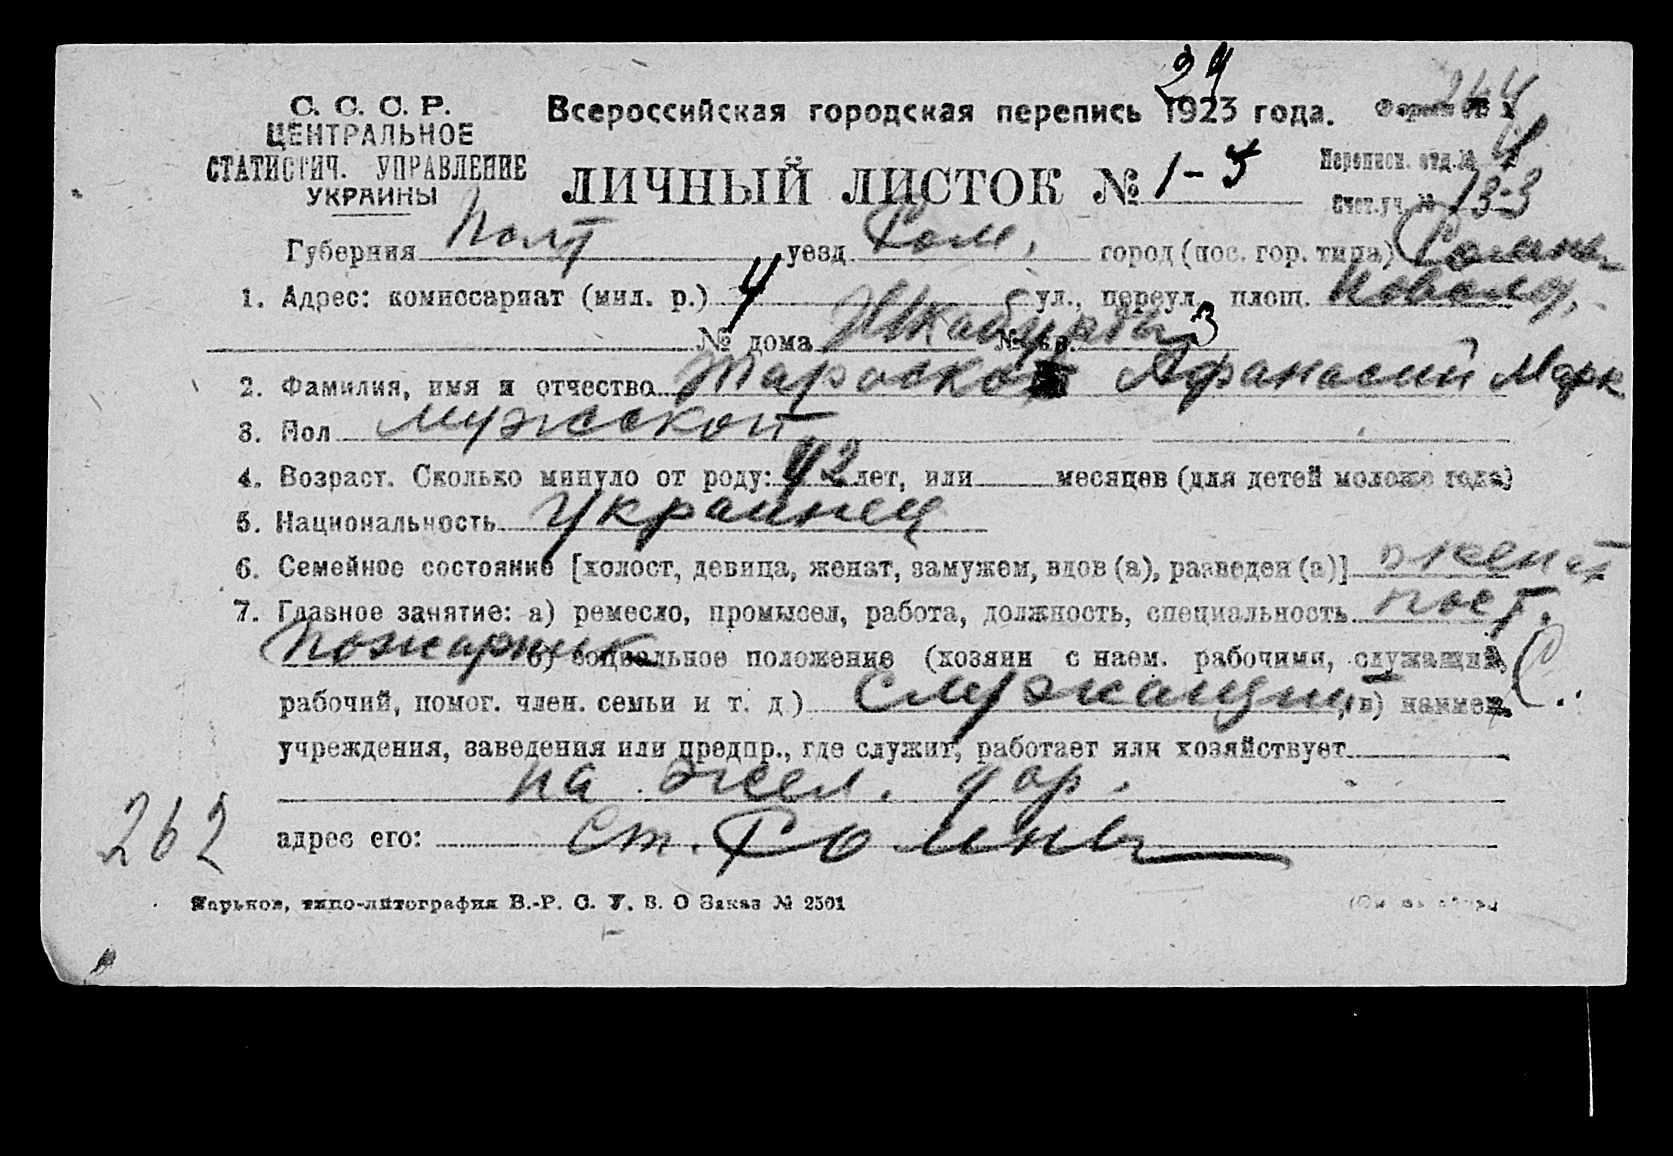 24
С. С. С. Р.
ЦЕНТРАЛЬНОЕ
СТАТИСТИЧ. УПРАВЛЕНИЕ
УКРАИНЫ
Всероссийская городская перепись 1923 года. Форма № 1
244
ЛИЧНЫЙ ЛИСТОК № 1-5
Переписн. отд. № 4
Счет. уч. № 13-3
Губерния Полт уезд Ром, город (пос. гор. типа) Ромны
1. Адрес: комиссариат (мил. р.) 4 ул., переул., площ.
№ дома № кв. 3
2. Фамилия, имя и отчество Афанасий Марк
3. Пол мужской
4. Возраст. Сколько минуло от роду: 42 лет, или месяцев (для детей моложе года)
5. Национальность украинец
6. Семейное состояние [холост, девица, женат, замужем, вдов (а), разведен (а)] женат
7. Главное занятие: а) ремесло, промысел, работа, должность, специальность пост.
пожарник б) социальное положение (хозяин с наем. рабочими, служащий, С.
рабочий, помог. член. семьи и т. д.) служащий, в) наимен.
учреждения, заведения или предпр., где служит, работает или хозяйствует
на жел. дор.
262
адрес его: ст. Ромны
Харьков, типо-литография В.-Р. С. У. В. О Заказ № 2501